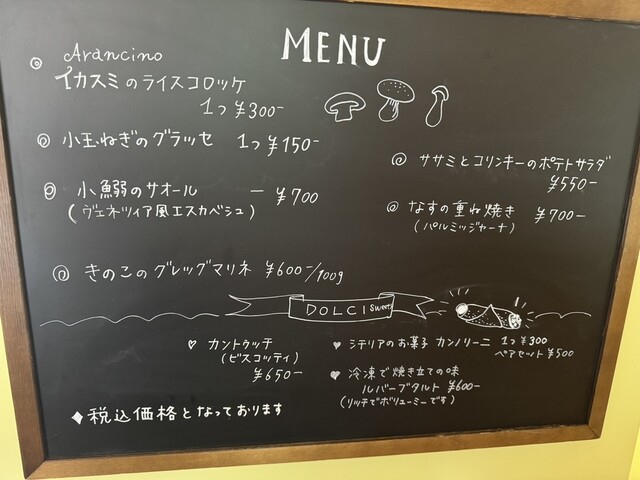 MENU
Arancino
イカスミのライスコロッケ
1つ ¥300-
小玉ねぎのグラッセ 1つ ¥150-
ササミとコリンキーのポテトサラダ
¥550-
小鰯のサオール ー ¥700
(ヴェネツィア風エスカベシュ)
なすの重ね焼き ¥700-
(パルミッジャーナ)
きのこのグレッグマリネ ¥600-/100g
DOLCI sweets
カントゥッチ
(ビスコッティ)
¥650-
シチリアのお菓子 カンノリーニ 1つ ¥300
ペアセット ¥500
冷凍で焼き立ての味
ルバーブタルト ¥600-
(リッチでボリューミーです)
◆税込価格となっております